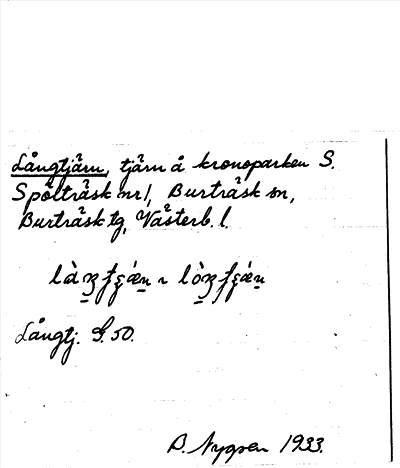 Långtjärn, tjärn å kronoparken S.
Spölträsk nr 1, Burträsk sn,
Burträsk tg, Västerb. l.
Långtj. G. 50.
B. Nygren 1933.